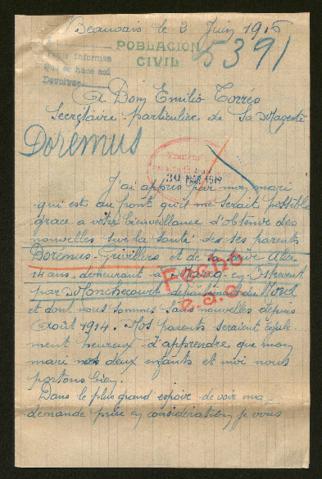 Beauvais le 3 Juin 1916
POBLACION
CIVIL
5391
Pedir informes
que se hace
Devolver
A Dom Emilio Torrès
Secrétaire particulier de Sa Magesté
Doremus
J'ai appris par mon mari
qui est au front qu'il me serait possible
grace a votre bienveillance d'obtenir des
nouvelles sur la santé des ses parents
Doremus-Grivillers et de sa
14 ans, demeurant a en Ostrevent
par Monchecourt département du Nord
et dont nous sommes sans nouvelles depuis
Août 1914. Nos parents seraient égale-
ment heureux d'apprendre que mon
mari nos deux enfants et moi nous
portons bien.
Dans le plus grand espoir de voir ma
demande prise en considération je vous